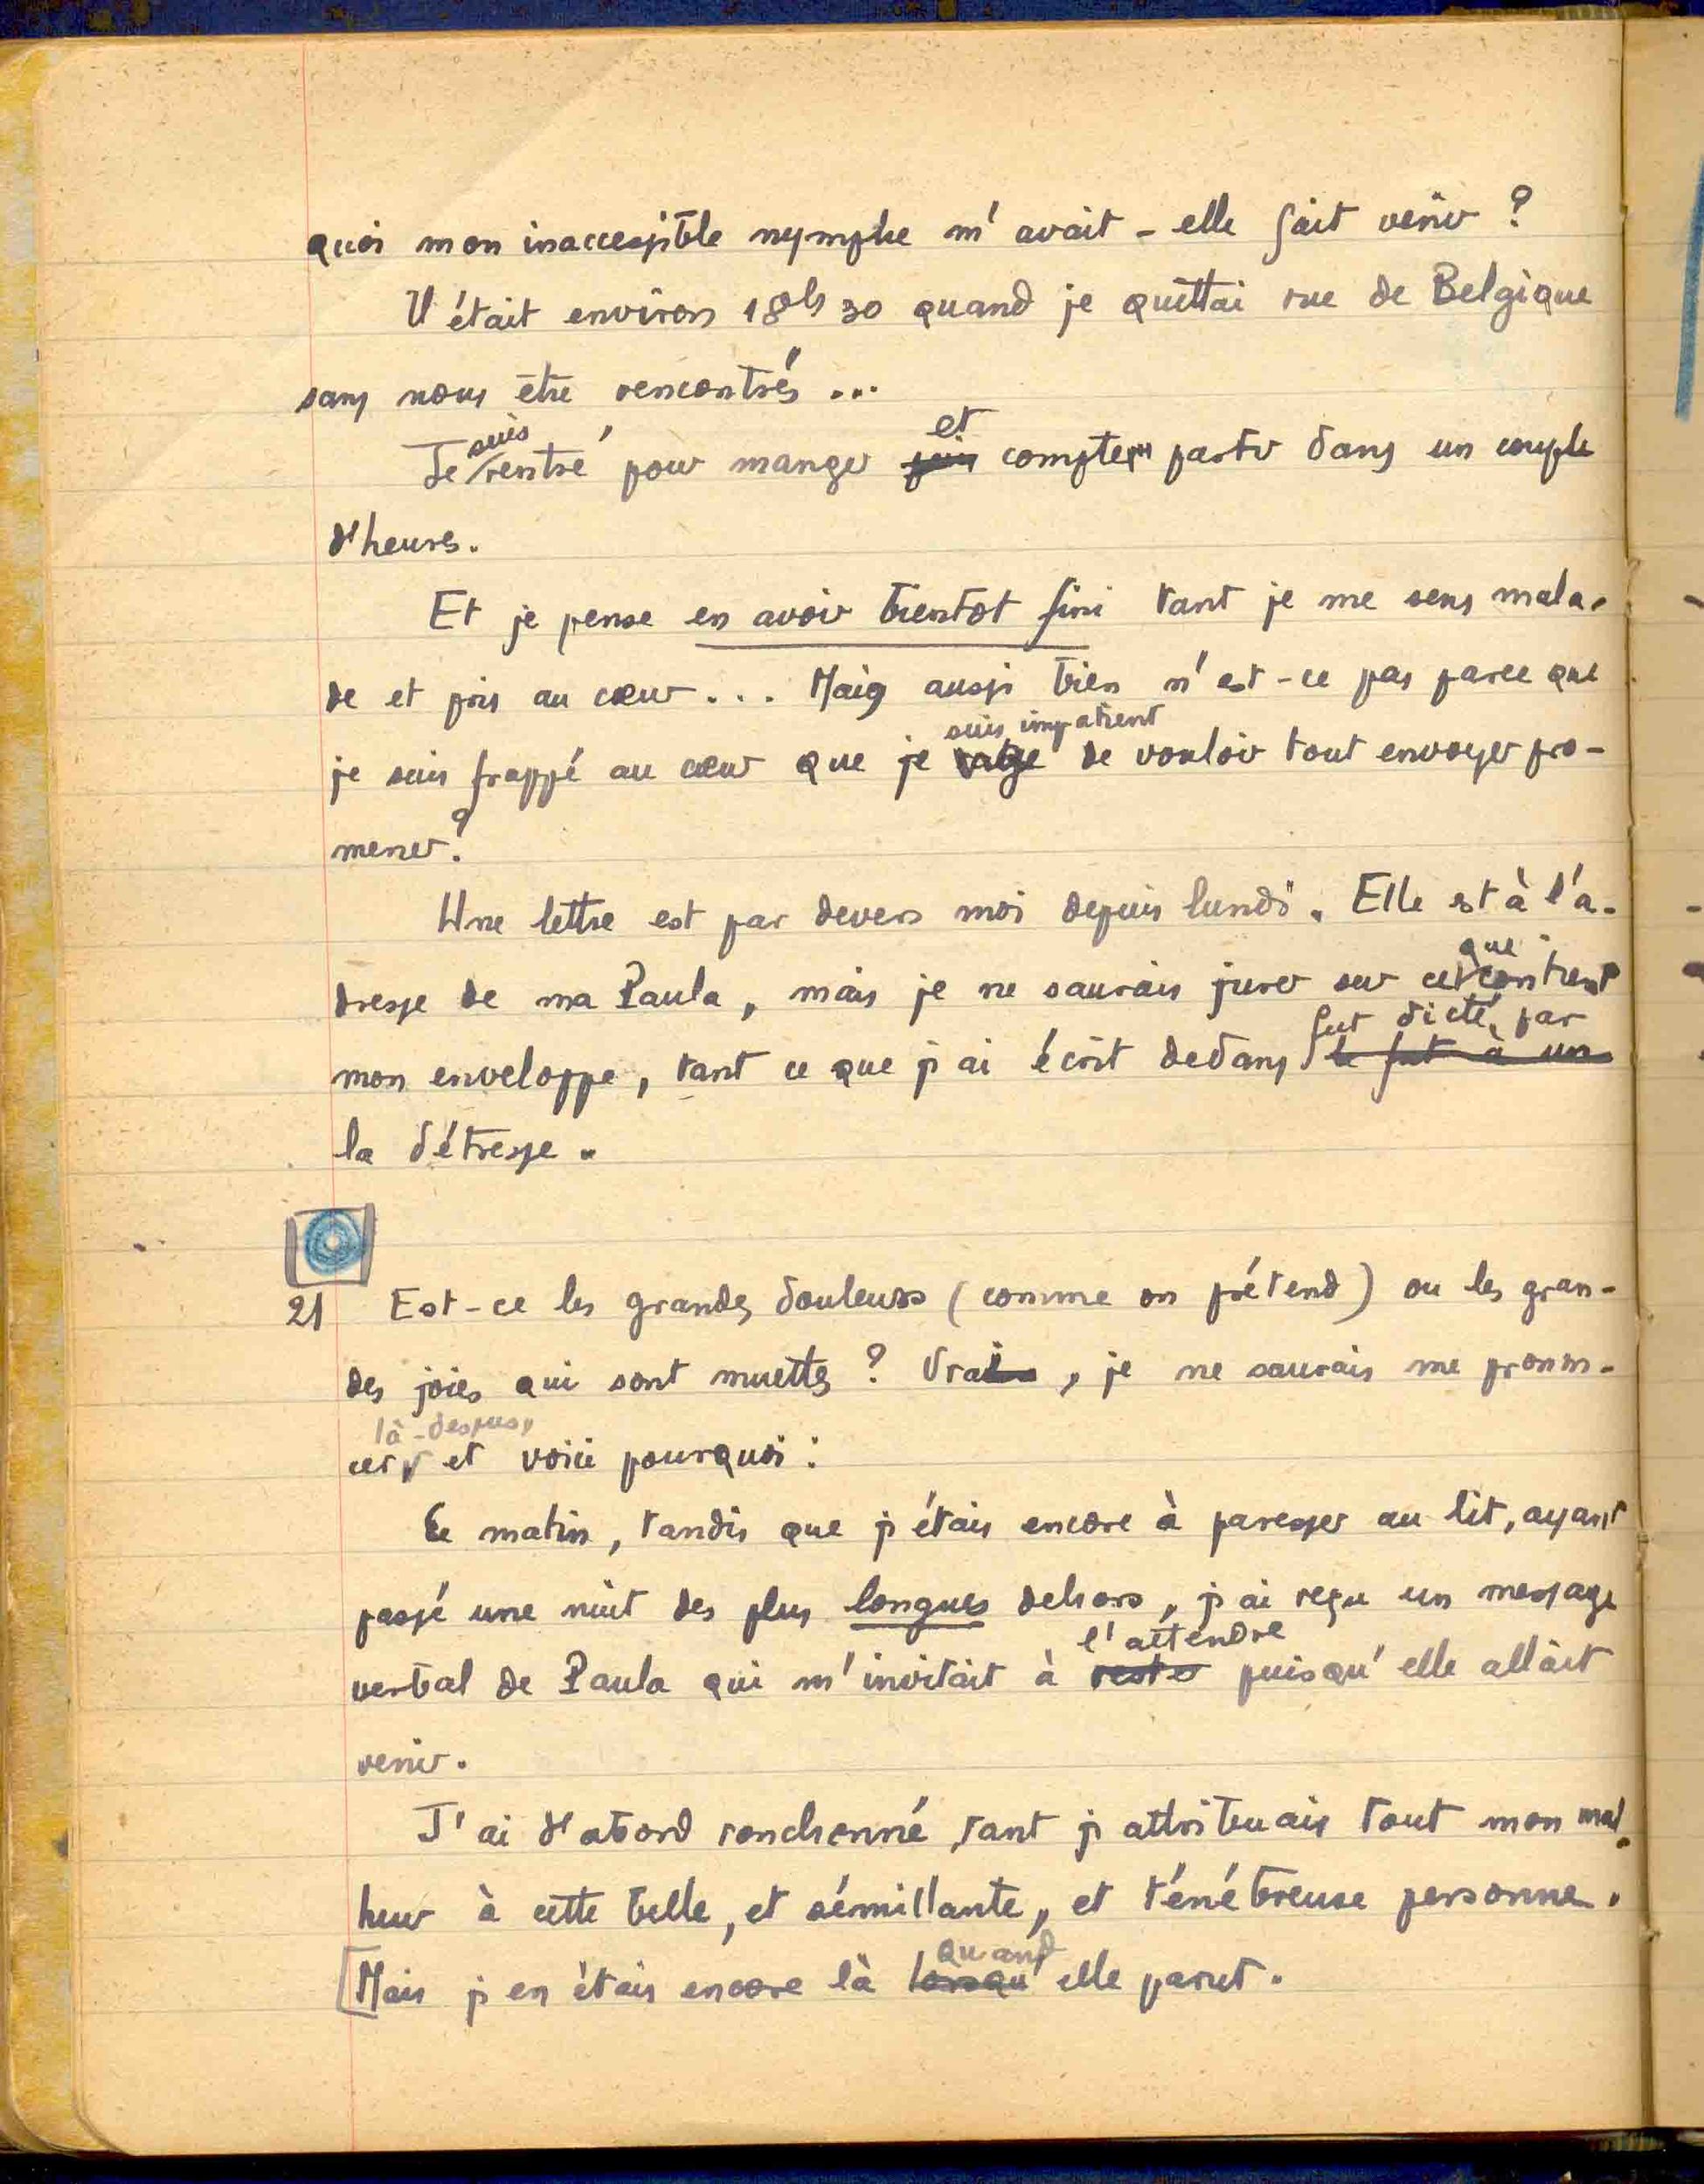 quoi mon inaccessible nymphe m'avait-elle fait venir ?
Il était environ 18h 30 quand je quittai rue de Belgique
sans nous être rencontrés ...
suis et
Je rentré pour manger puis compte partir dans un couple
d'heures.
Et je pense en avoir bientôt fini tant je me sens mala-
de et pris au cœur ... Mais aussi bien n'est-ce pas parce que
suis impatient
je suis frappé au cœur que je de vouloir tout envoyer pro-
mener ?
Une lettre est par devers moi depuis lundi. Elle est à l'a-
que
dresse de ma Paula, mais je ne saurais jurer sur ce contient
fut dicté par
mon enveloppe, tant ce que j'ai écrit dedans le fut à un
la détresse.
21 Est-ce les grandes douleurs (comme on prétend) ou les gran-
des joies qui sont muettes ? Vrai, je ne saurais me pronon-
là-dessus,
cer et voici pourquoi :
Ce matin, tandis que j'étais encore à paresser au lit, ayant
passé une nuit des plus longues dehors, j'ai reçu un message
l'attendre
verbal de Paula qui m'invitait à rester puisqu'elle allait
venir.
J'ai d'abord ronchonné, tant j'attribuais tout mon mal-
heur à cette belle, et sémillante, et ténébreuse personne.
quand
[Mais j'en étais encore là lorsqu'elle parut.